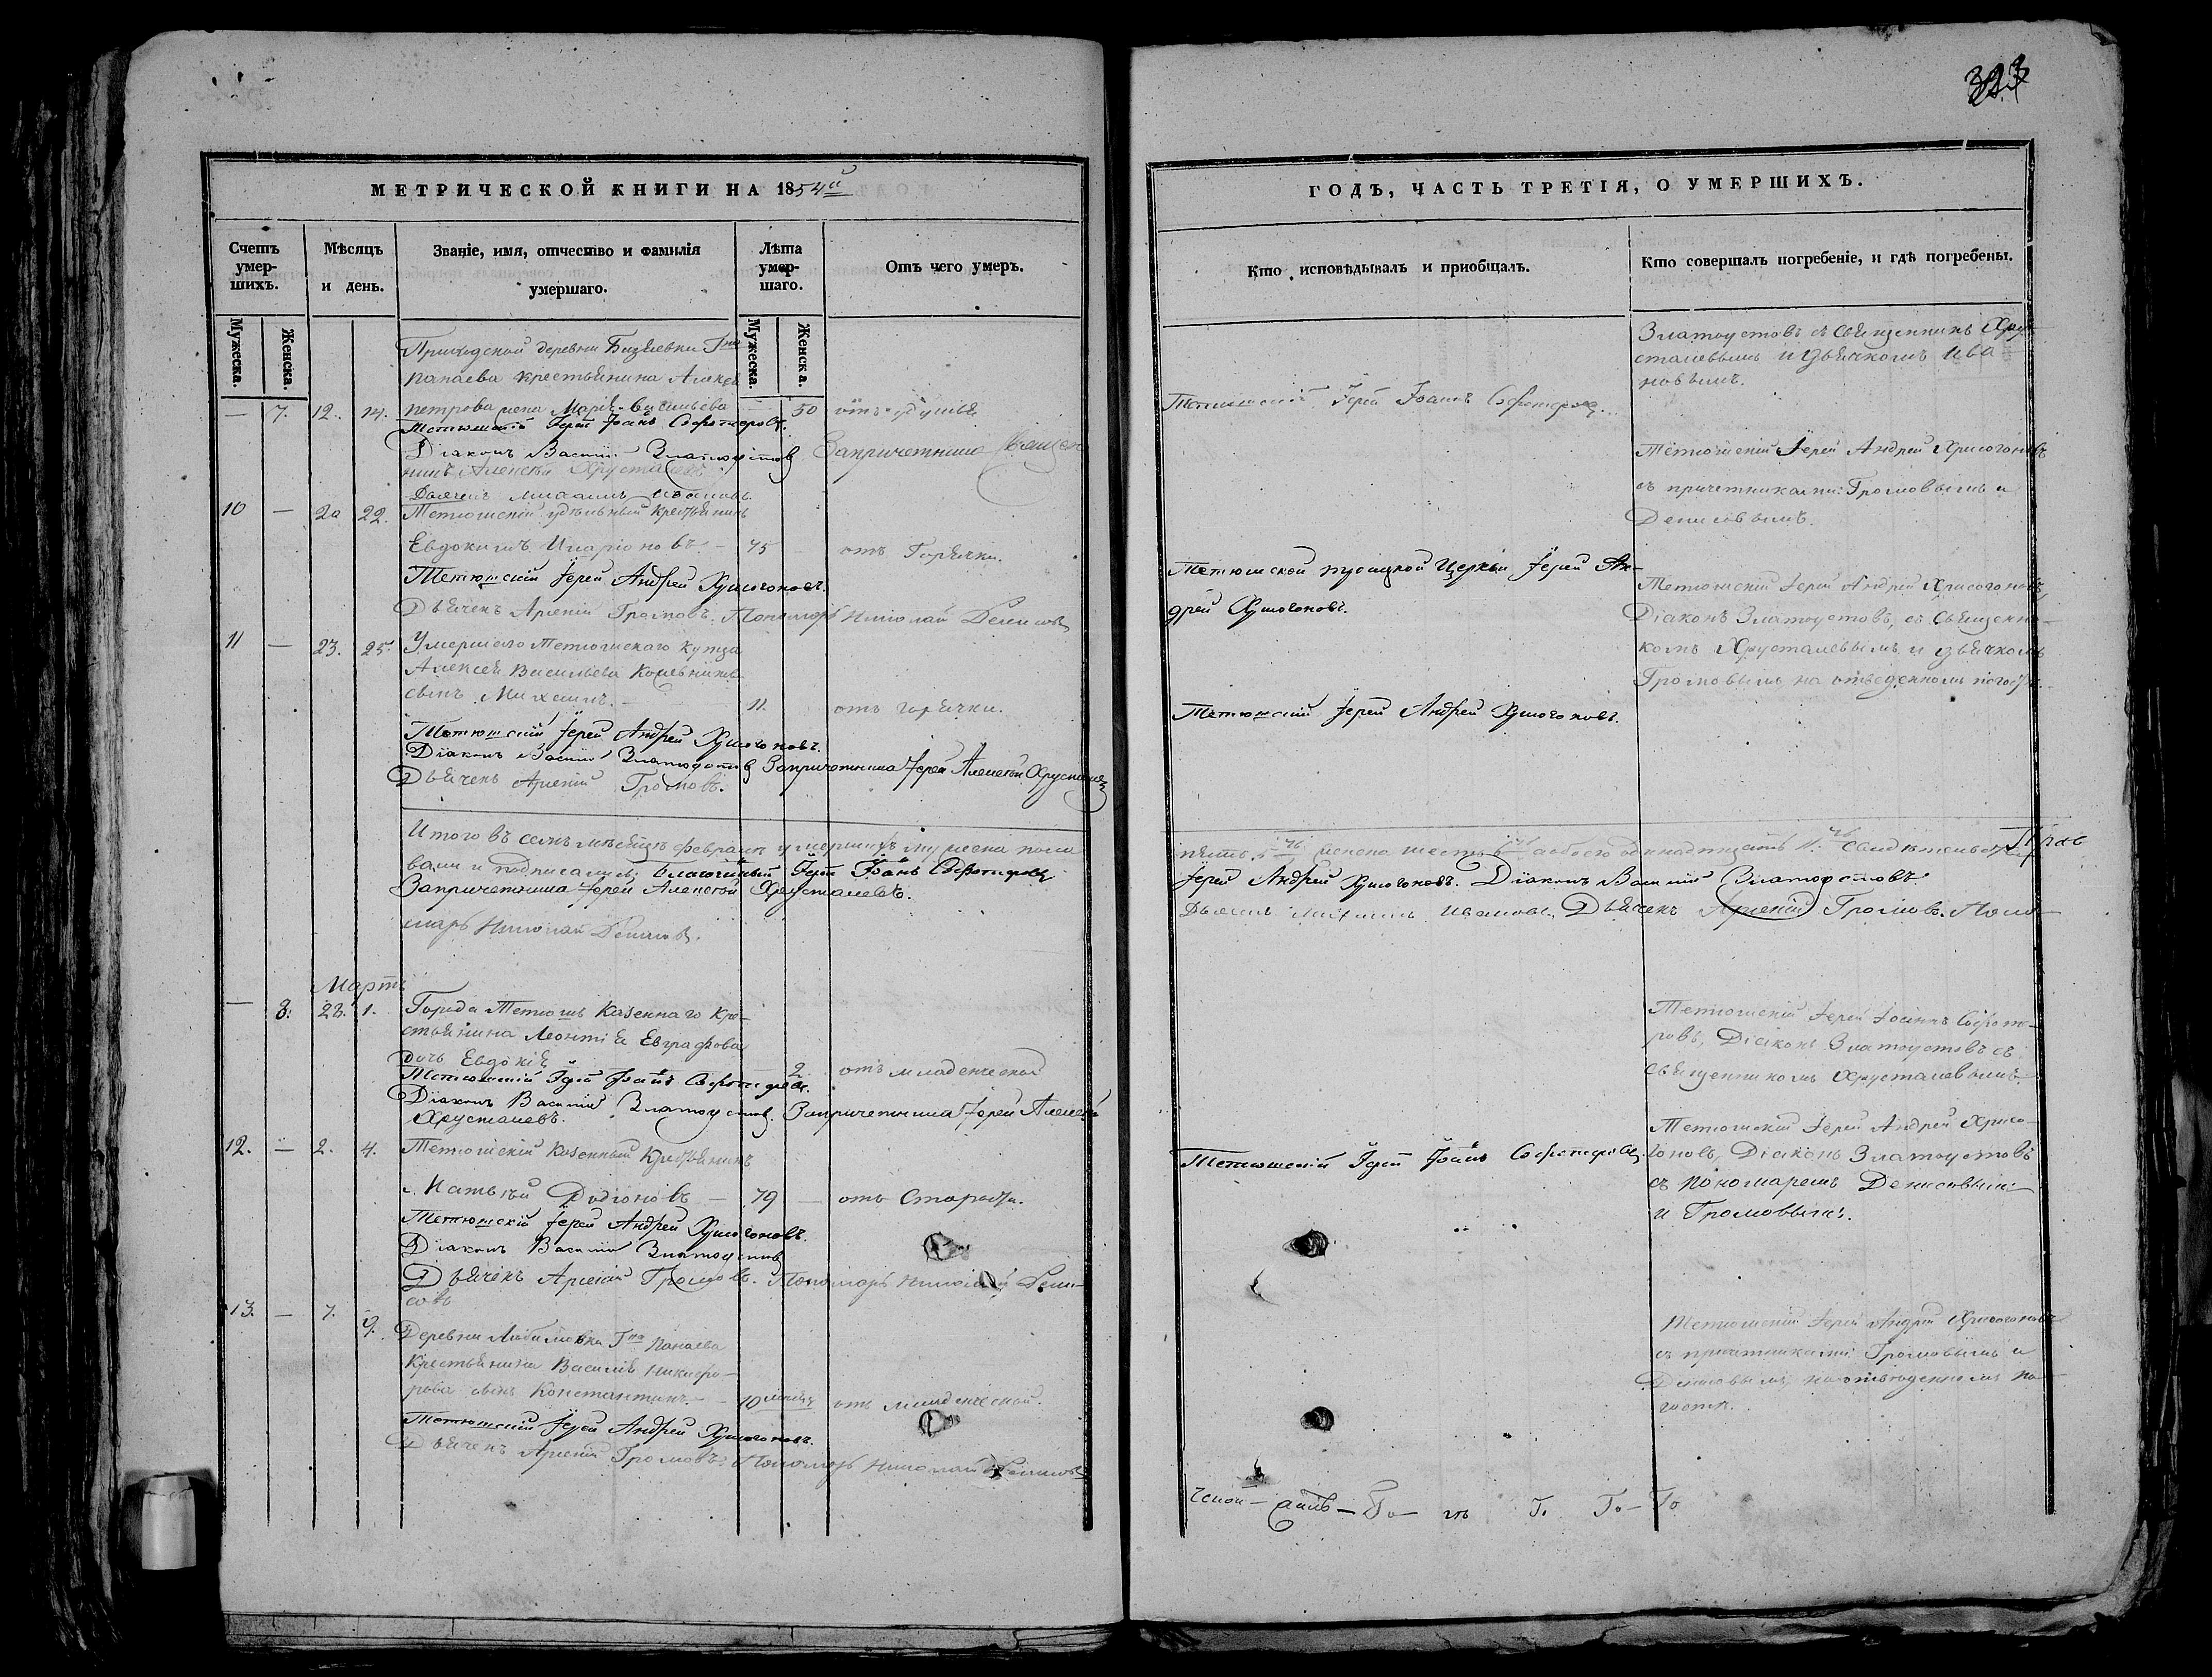 МЕТРИЧЕСКОЙ КНИГИ НА 1854й
Счетъ умер-шихъ.
Мѣсяцъ и день.
Званіе, имя, отчество и фамилія умершаго.
Лѣта умер-шаго.
Отъ чего умеръ.
Мужеска.
Женска.
Мужеска.
Женска.
Приходской деревни
крестьянина
— 7. 12. 14. петрова жена Марія Васильева — 50 отъ удушья
Тетюшскій Іерей Іоаннъ
Діаконъ Василій Златоустов За причетника Священ
никъ Алексѣй Хрусталевъ
Дьячекъ Михаилъ Ивановъ
10 — 20 22. Тетюшскій удѣльный крестьянинъ
Евдокимъ Иларіоновъ. — 75 отъ Горячки.
Тетюшскій Іерей Андрей Хрисогоновъ.
Дьячекъ Арсеній Громовъ. Пономарь Николай Денисовъ
11 — 23. 25. Умершаго Тетюшскаго купца
Алексея Васильева
сынъ Михаилъ. — 11. отъ горячки.
Тетюшскій Іерей Андрей Хрисогоновъ.
Діаконъ Василій Златоустов За причетника Іерей Алексѣй Хрусталев
Дьячекъ Арсеній Громовъ.
Итого въ семъ мѣсяцѣ февралѣ умершихъ мужеска пола
вали и подписались: Благочинный Іерей Іоаннъ
За причетника Іерей Алексѣй Хрусталевъ.
марь Николай Денисов.
Мартъ
— 8. 28. 1. Города Тетюшъ Казеннаго кре-
стьянина Леонтія Евграфова
дочь Евдокія — 2. отъ младенческой
Тетюшскій Іерей Іоаннъ
Діаконъ Василій Златоустов. За причетника Іерей Алексѣй
Хрусталевъ.
12. — 2. 4. Тетюшскій Казенный Крестьянинъ
Родіоновъ — 79 — отъ Старости.
Тетюшскій Іерей Андрей Хрисогоновъ.
Діаконъ Василій Златоустов
Дьячекъ Арсеній Громовъ. Пономарь Николай Дени-
совъ
13. — 7. 9. Деревни Любимовка Гна Панаева
Крестьянина Василія Никифо-
рова сынъ Константинъ. — 10 отъ младенческой.
Тетюшскій Іерей Андрей Хрисогоновъ.
Дьячекъ Арсеній Громовъ. Пономарь Николай Денисовъ
ГОДЪ, ЧАСТЬ ТРЕТІЯ, О УМЕРШИХЪ.
Кто исповѣдывалъ и пріобщалъ.
Кто совершалъ погребеніе, и гдѣ погребены.
Златоустовъ съ Священникъ Хру-
сталевымъ и дьячкомъ Ива
новымъ.
Тетюшскій Іерей Іоаннъ
Тетюшскій Іерей Андрей Хрисогоновъ
съ причетниками: Громовымъ и
Денисовымъ.
Тетюшской троицкой Церкви Іерей Ан-
дрей Хрисогоновъ.
Тетюшскій Іерей Андрей Хрисогоновъ,
Діаконъ Златоустовъ, съ Священни-
комъ Хрусталевымъ и дьячкомъ
Громовымъ на отведенномъ погостѣ.
Тетюшскій Іерей Андрей Хрисогоновъ.
пять 5 женска шесть 6 а обоего одинадцать 11. свидѣтельст
Іерей Андрей Хрисогоновъ. Діаконъ Василій Златоустовъ.
Дьячекъ Михаилъ Ивановъ. Дьячекъ Арсеній Громовъ. Поно-
Тетюшскій Іерей Іоаннъ
ровъ, Діаконъ Златоустовъ съ
Священникомъ Хрусталевымъ.
Тетюшскій Іерей Іоаннъ
Тетюшскій Іерей Андрей Хрисо-
гоновъ, Діаконъ Златоустовъ
съ Пономаремъ Денисовымъ
и Громовымъ.
Тетюшскій Іерей Андрей Хрисогоновъ
съ причетниками: Громовымъ и
Денисовымъ, на отведенномъ по-
гостѣ.